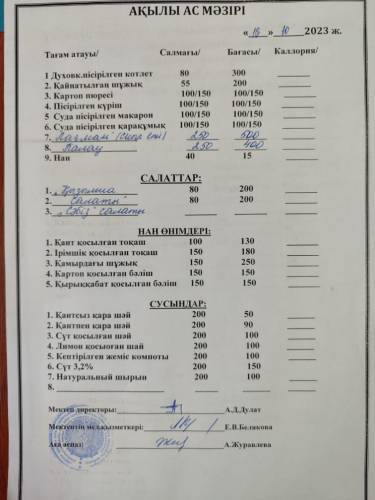 АҚЫЛЫ АС МӘЗІРІ
« 18 » 10 2023 ж.
Тағам атауы/ Салмағы/ Бағасы/ Каллория/
1 Духовк.пісірілген котлет 80 300
2. Қайнатылған шұжық 55 200
3. Картоп пюресі 100/150 100/150
4. Пісірілген күріш 100/150 100/150
5 Суда пісірілген макарон 100/150 100/150
6. Суда пісірілген қарақұмық 100/150 100/150
7. Лағман (сиыр еті) 250 500
8. Палау 250 400
9. Нан 40 15
САЛАТТАР:
1. 80 200
2. салаты 80 200
3. „Сәбіз" салаты
НАН ӨНІМДЕРІ:
1. Қант қосылған тоқаш 100 130
2. Ірімшік қосылған тоқаш 150 180
3. Қамырдағы шұжық 150 250
4. Картоп қосылған бәліш 150 150
5. Қырыққабат қосылған бәліш 150 150
СУСЫНДАР:
1. Қантсыз қара шәй 200 50
2. Қантпен қара шәй 200 90
3. Сүт қосылған шәй 200 100
4. Лимон қосыоған шай 200 100
5. Кептірілген жеміс компоты 200 100
6. Сүт 3,2% 200 150
7. Натуральный шырын 200 100
8.
Мектеп директоры: А.Д.Дулат
Мектептің мед.қызметкері: Е.В.Белякова
Аға аспаз: А.Журавлева